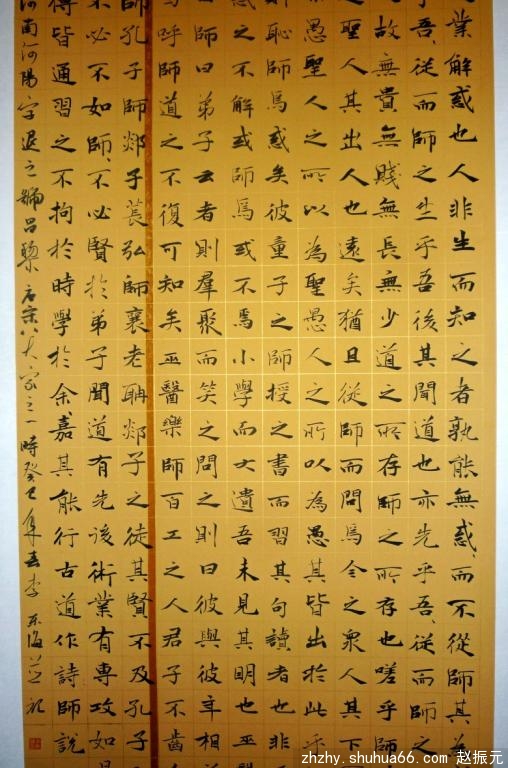 業解惑也人非生而知之者孰能無惑、而不從師其為
吾、從而師之生乎吾後其聞道也亦先乎吾、從而師之
故無貴無賤無長無少道之所存師之所存也嗟乎師
聖人其出人也遠矣猶且從師而問焉今之衆人其下
愚聖人之所以為聖愚人之所以為愚其皆出於此乎
恥師焉惑矣彼童子之師授之書而習其句讀者也非
之不解或師焉或不焉小學而大遺吾未見其明也巫
師曰弟子云者則羣聚而笑之問之則曰彼與彼年相
呼師道之不復可知矣巫醫樂師百工之人君子不齒
師孔子師郯子萇弘師襄老聃郯子之徒其賢不及孔子
不必不如師、不必賢於弟子聞道有先後術業有專攻如是
傳皆通習之不拘於時學於余嘉其能行古道作詩師說
河南河陽字退之號昌黎唐宋八大家之一時癸巳年李東海並記
zhzhy.shuhua66.com 赵振元